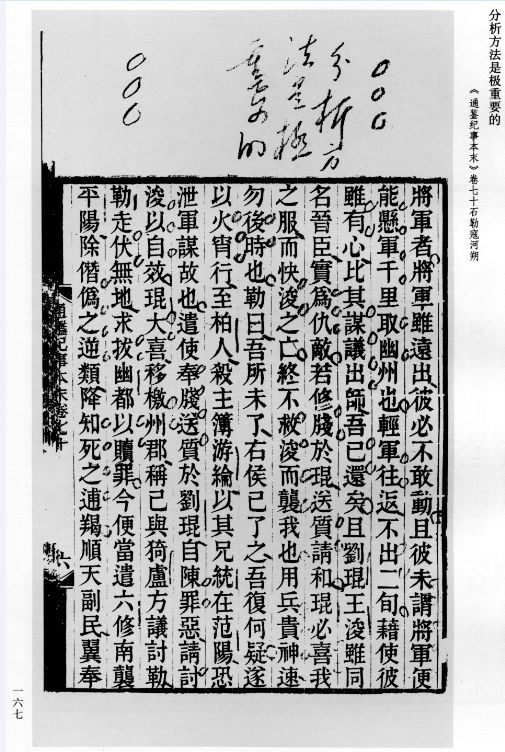 分析方法是极重要的
《通鉴纪事本末》卷七十石勒寇河朔
分析方
法是極
重要的
將軍者將軍雖遠出彼必不敢動且彼未謂將軍便
能懸軍千里取幽州也輕軍往返不出二旬藉使彼
雖有心比其謀議出師吾已還矣且劉琨王浚雖同
名晉臣實爲仇敵若修牋於琨送質請和琨必喜我
之服而快浚之亡終不救浚而襲我也用兵貴神速
勿後時也勒曰吾所未了右侯已了之吾復何疑遂
以火宵行至柏人殺主簿游綸以其兄統在范陽恐
泄軍謀故也遣使奉牋送質於劉琨自陳罪惡請討
浚以自效琨大喜移檄州郡稱己與猗盧方議討勒
勒走伏無地求拔幽都以贖罪今便當遣六修南襲
平陽除僭僞之逆類降知死之逋羯順天副民翼奉
通鑑紀事本末卷七十
六
一六七